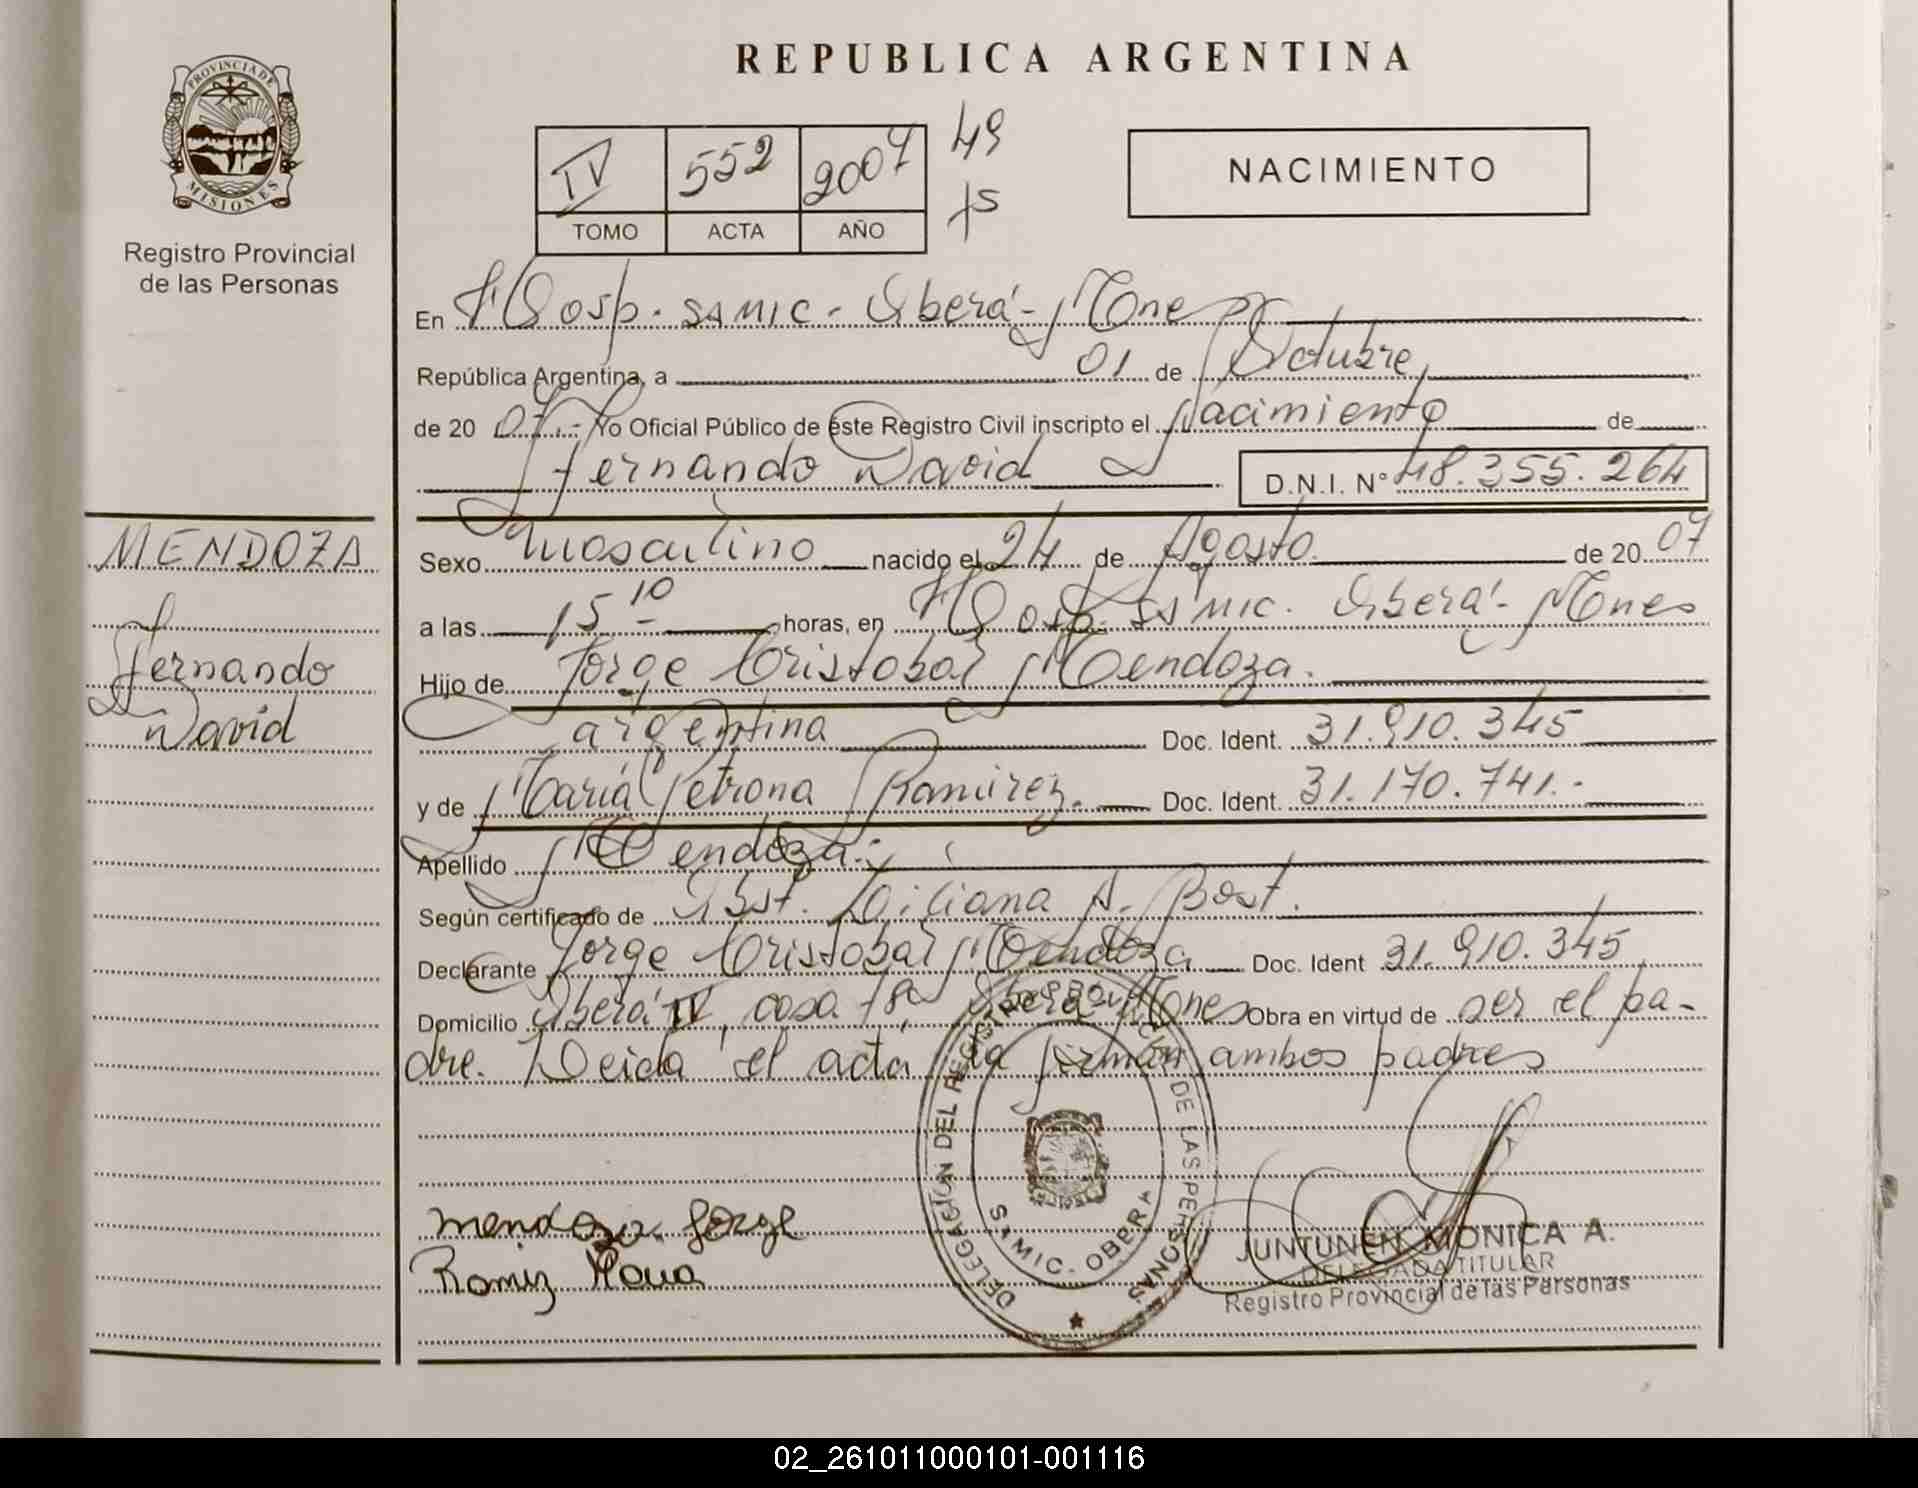 PROVINCIA DE
MISIONES
Registro Provincial
de las Personas
MENDOZA
Fernando
David
REPUBLICA ARGENTINA
IV 552 2007
TOMO ACTA AÑO
49
75
NACIMIENTO
En Hosp. SAMIC - Oberá - Mnes
República Argentina, a 01 de Octubre,
de 20 07.- Yo Oficial Público de éste Registro Civil inscripto el Nacimiento de
Fernando David D.N.I. Nº 48.355.264
Sexo masculino nacido el 24 de Agosto de 20 07
a las 15 10 horas, en Hosp. SAMIC. Oberá - Mnes
Hijo de Jorge Cristobal Mendoza.
argentina Doc. Ident. 31.910.345
y de María Petrona Ramirez. Doc. Ident. 31.170.741.-
Apellido Mendoza.-
Según certificado de Obst. Liliana A. Bost.
Declarante Jorge Cristobal Mendoza Doc. Ident 31.910.345
Domicilio Oberá IV, casa 78, Oberá Mnes Obra en virtud de ser el pa-
dre. Leida el acta la firman ambos padres
DELEGACIÓN DEL REGISTRO DE LAS PERSONAS
SAMIC. OBERA
mendoza Jorge
Ramirez Maria
JUNTUNEN MONICA A.
DELEGADA TITULAR
Registro Provincial de las Personas
02_261011000101-001116